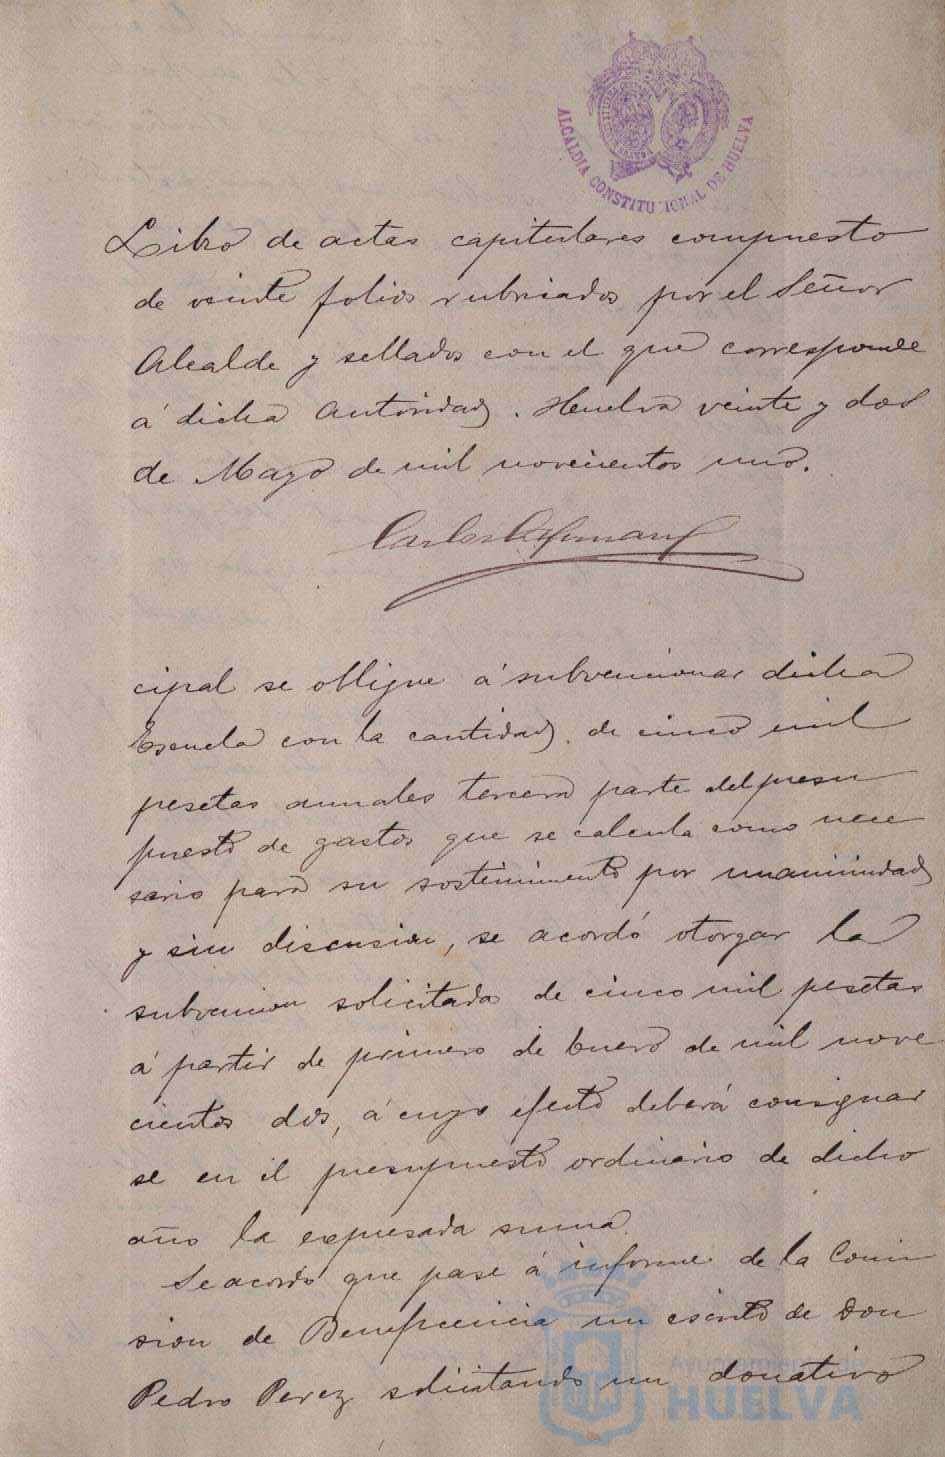 ALCALDIA CONSTITUCIONAL DE HUELVA
Libro de actas capitulares compuesto
de veinte folios rubricados por el Señor
Alcalde y sellados con el que corresponde
á dicha Autoridad. Huelva veinte y dos
de Mayo de mil novecientos uno.
Carlos
cipal se obligue á subvencionar dicha
Escuela con la cantidad de cinco mil
pesetas anuales tercera parte del presu
puesto de gastos que se calcula como nece
sario para su sostenimiento por unanimidad
y sin discusion, se acordó otorgar la
subvencion solicitada de cinco mil pesetas
á partir de primero de Enero de mil nove
cientos dos, á cuyo efecto deberá consignar
se en el presupuesto ordinario de dicho
año la expresada suma.
Se acordó que pase á informe de la Comi
sion de Beneficencia un escrito de Don
Pedro Perez solicitando un donativo
Ayuntamiento de
HUELVA